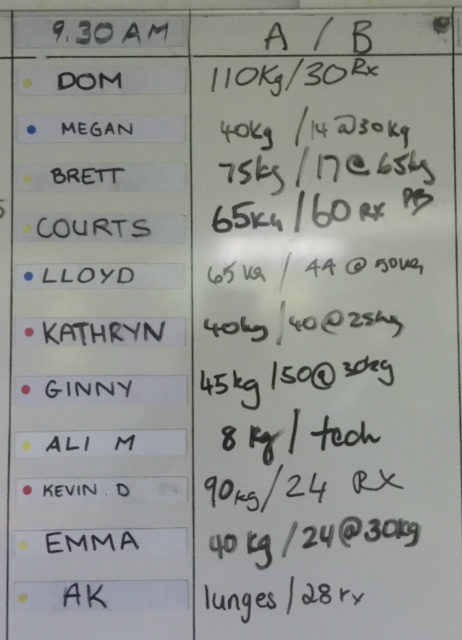 9.30 AM A / B
DOM 110Kg/30 Rx
MEGAN 40kg /14 @ 30kg
BRETT 75kg / 17 @ 65kg
COURTS 65KG/60 RX PB
LLOYD 65 KG / 44 @ 50KG
KATHRYN 40kg /40 @ 25kg
GINNY 45kg /50@ 30kg
ALI M 8 Kg / tech
KEVIN. D 90kg/24 RX
EMMA 40 kg /24 @30kg
AK lunges / 28 rx